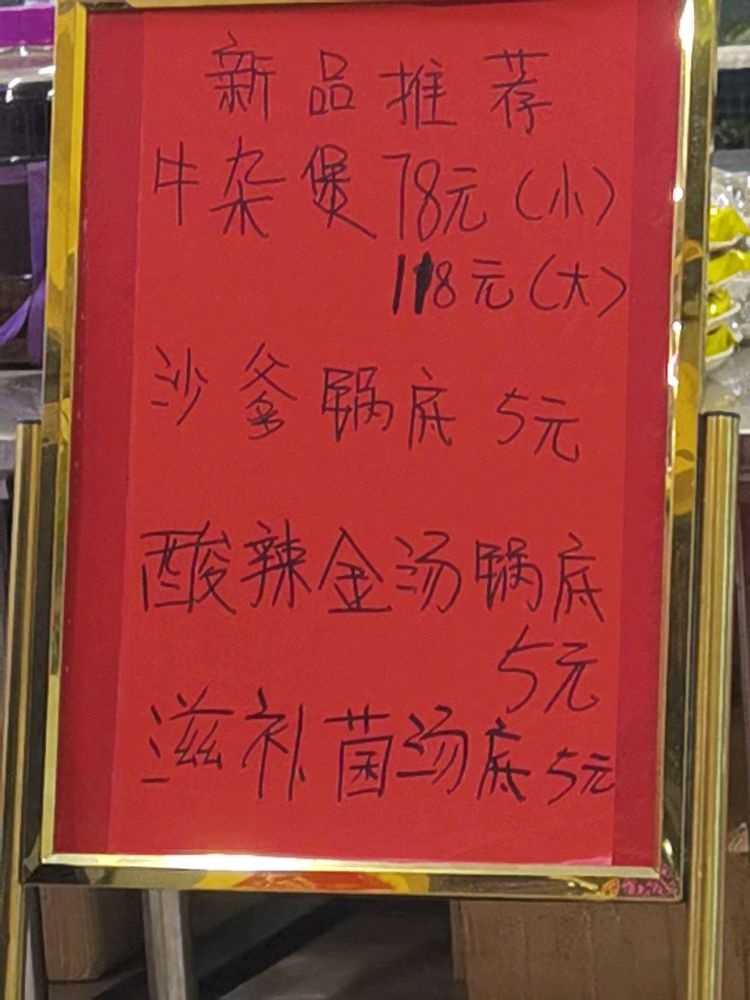 新品推荐
牛杂煲78元(小)
118元(大)
沙爹锅底 5元
酸辣金汤锅底
5元
滋补菌汤底5元